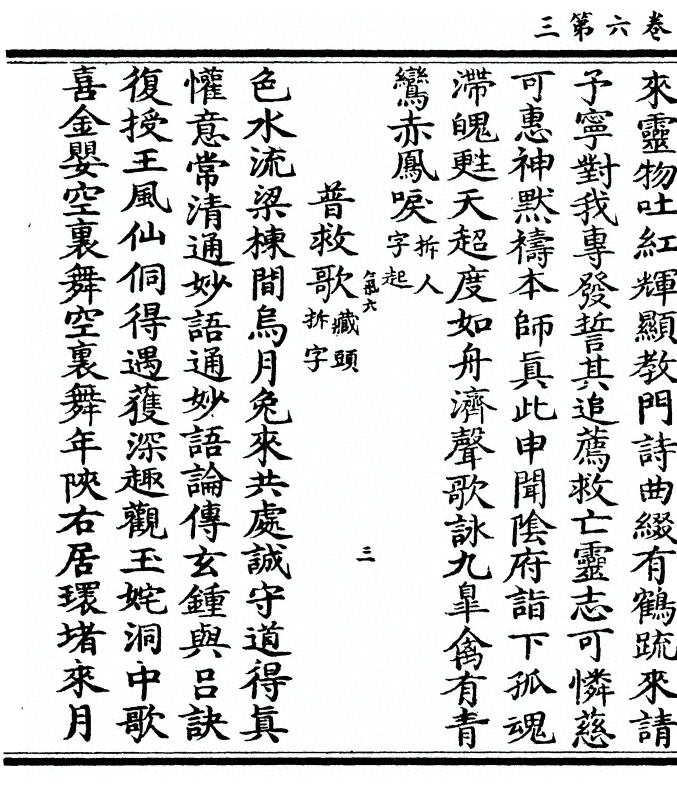 卷六第三
來靈物吐紅輝顯教門詩曲綴有鶴䟽來請
予寧對我專發誓其追薦救亡靈志可憐慈
可惠神默禱本師眞此申聞陰府詣下孤魂
滯魄甦天超度如舟濟聲歌詠九臯禽有青
鸞赤鳳唳拆人字起
氣六 三
普救歌藏頭拆字
色水流梁棟間烏月兔來共處誠守道得眞
懽意常清通妙語通妙語論傳玄鍾與吕訣
復授王風仙侗得遇獲深趣觀玉姹洞中歌
喜金嬰空裏舞空裏舞年陜右居環堵來月